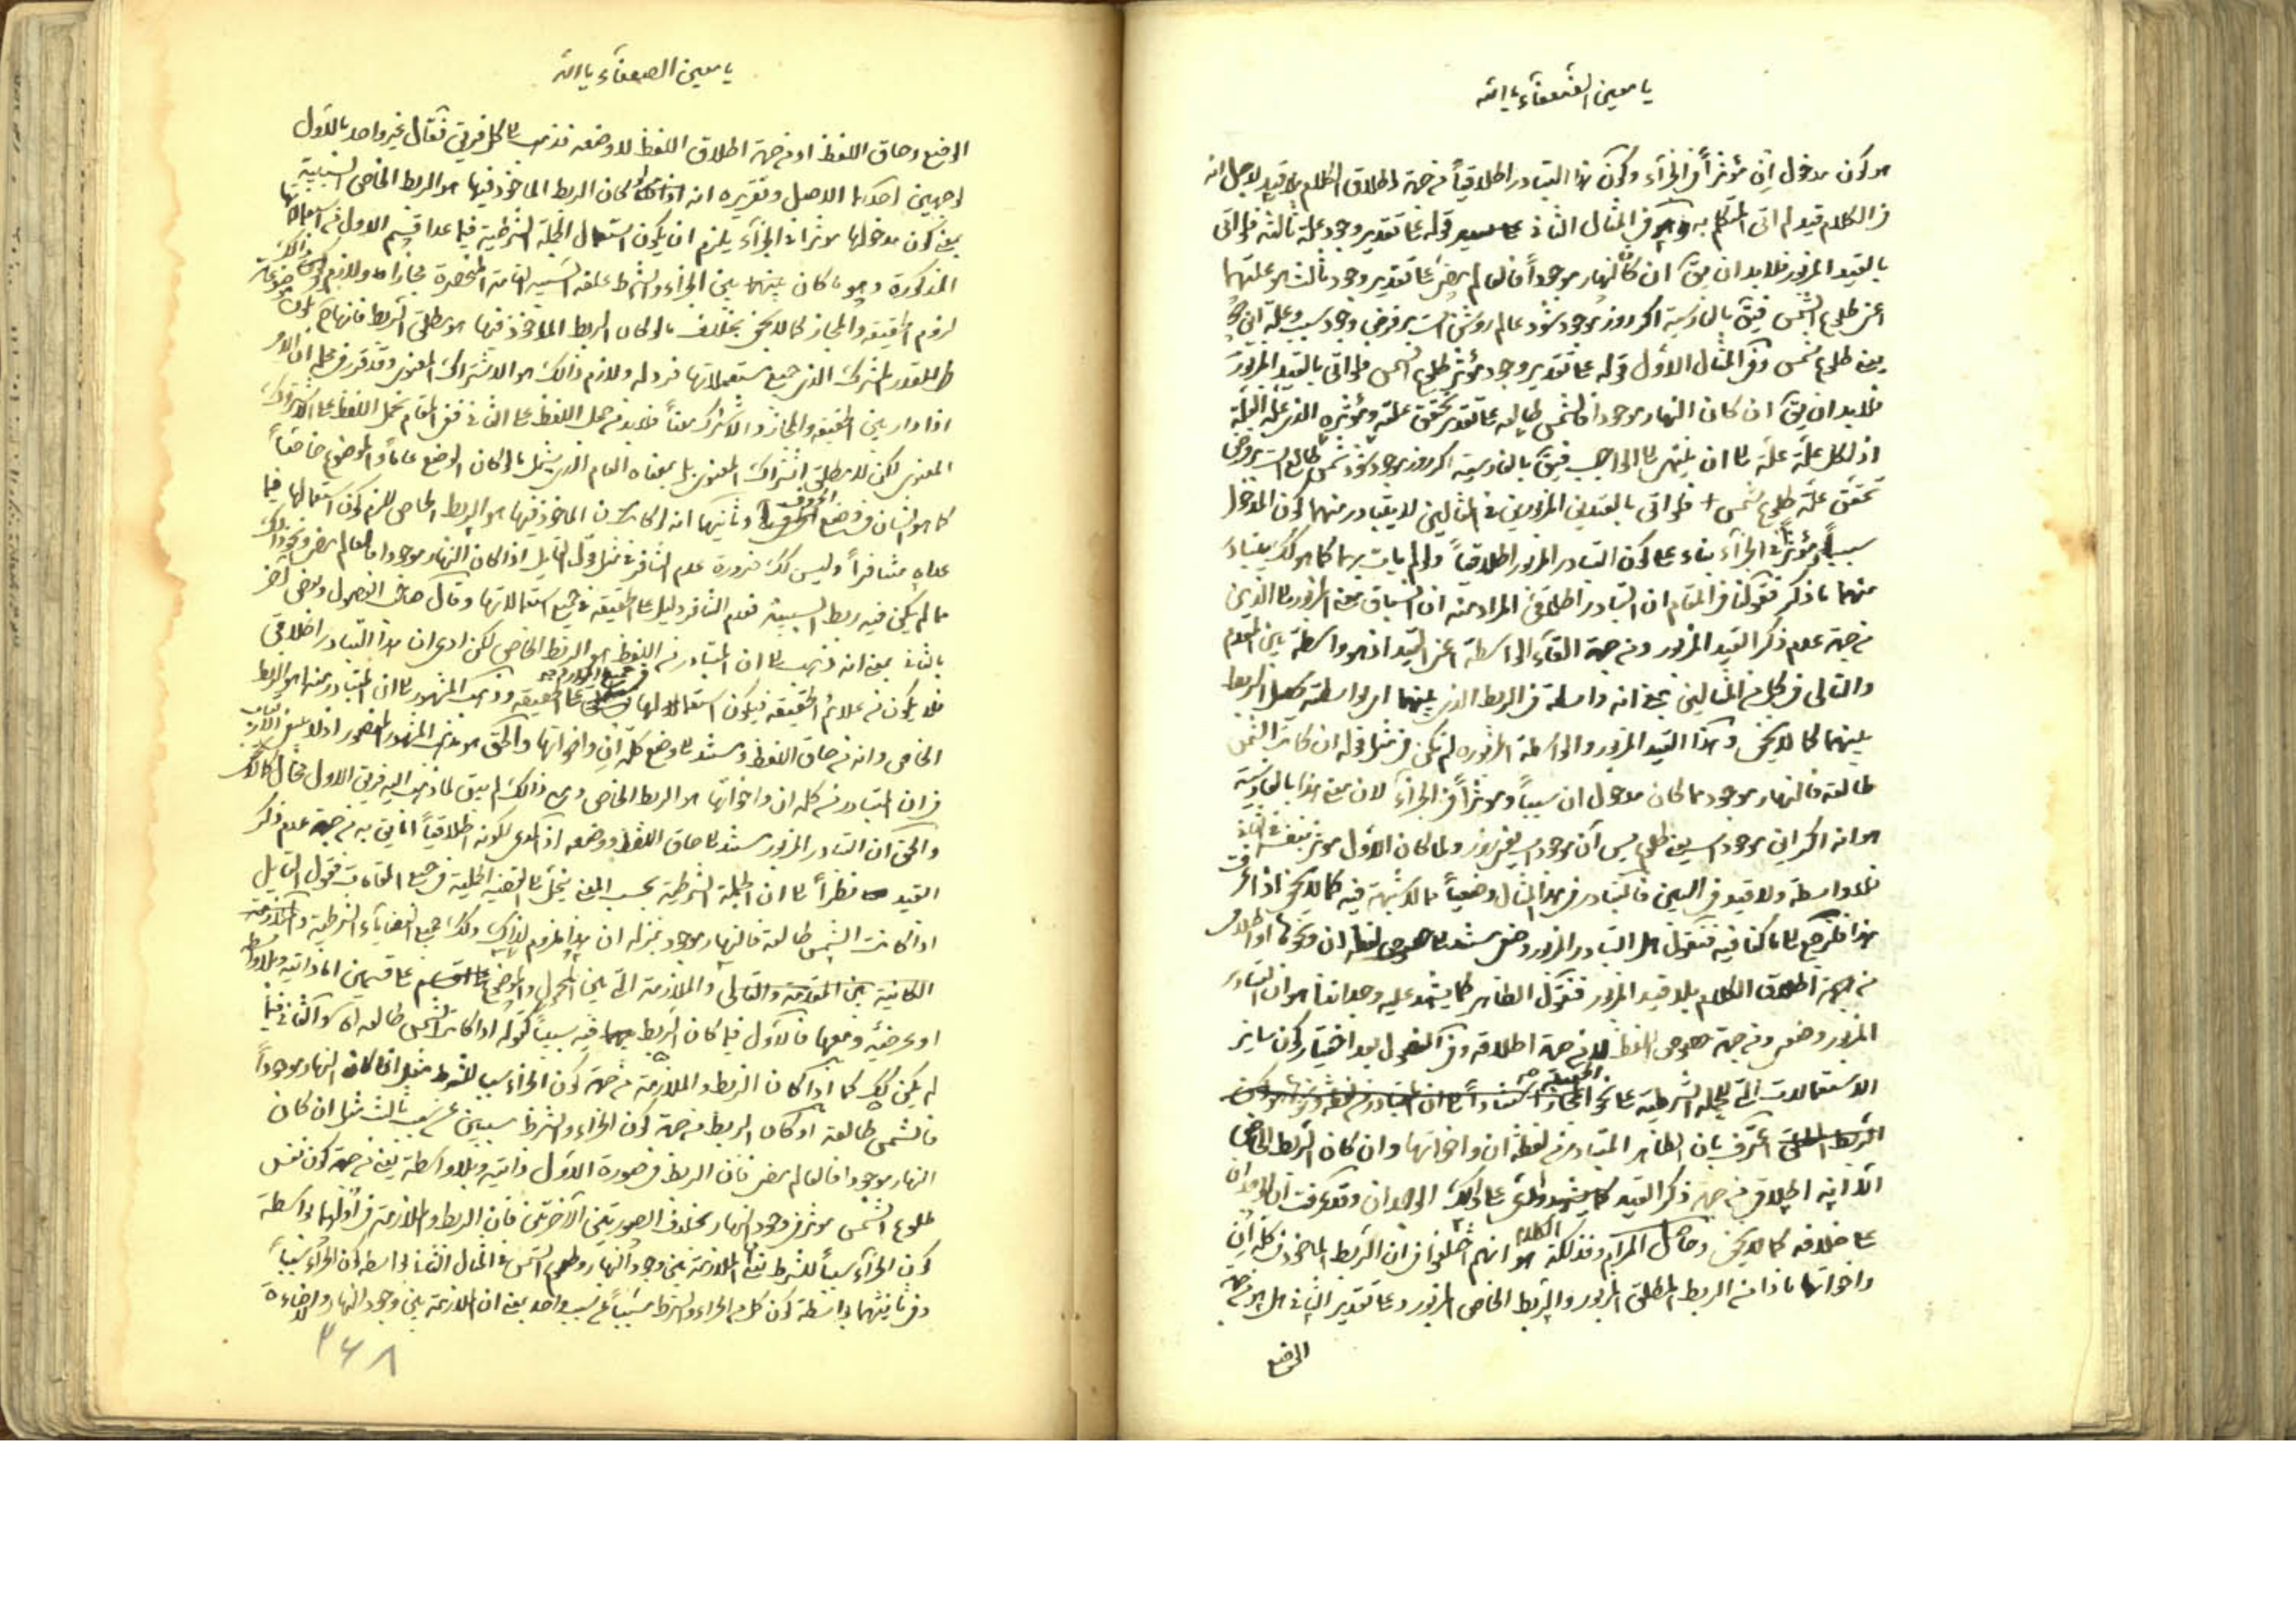 يا معين الضعفاء يا الله
هو كون مدخول ان مؤثراً في الجزاء وكون هذا التبادر اطلاقياً من جهة اطلاق الكلام بلا قيد لاجل انه
في الكلام قيد لم اتى المتكلم به في المثال الثاني قوله على تقدير وجود علة ثالثة فلو اتى
بالقيد المزبور فلا بد ان يق ان كان النهار موجوداً فالعالم مضئ على تقدير وجود ثالث هو علتهما
اعنى طلوع الشمس فيق بالفارسية اكر روز موجود شود عالم روشن است بر فرض وجود سبب وعلة
يعنى طلوع شمس وفي المثال الاول قوله على تقدير وجود مؤثر طلوع الشمس فلو اتى بالقيد المزبور
فلا بد ان يق ان كان النهار موجوداً فالشمس طالعة على تقدير تحقق علته ومؤثره الذى علة العلة
اذ لكل علة علة الى ان ينتهى الى الواجب فيق بالفارسية اكر روز موجود شود شمس طالع است بر فرض
تحقق علة طلوع شمس فلو اتى بالقيدين المزبورين في المثالين لا يتبادر منهما كون المدخول
سبباً ومؤثراً في الجزاء بناء على كون التبادر المزبور اطلاقياً ولو لم يات بهما كما هو كك يتبادر
منهما ما ذكر فنقول في المقام ان التبادر اطلاقى المراد منه ان انسباق المعنى المزبور الى الذهن
من جهة عدم ذكر القيد المزبور ومن جهة القاء الواسطة اعنى القيد اذ هو واسطة بين المقدم
والتالى في كل من المثالين بمعنى انه واسطة في الربط الذى بينهما اى بواسطته حصل الربط
بينهما كما لا يخفى وهذا القيد المزبور والواسطة المزبورة لم يكن في مثل قوله ان كانت الشمس
طالعة فالنهار موجود مما كان مدخول ان سبباً ومؤثراً في الجزاء لان معنى هذا بالفارسية
هو انه اكر اين موجود است يعنى طلوع پس آن موجود است يعنى روز ولما كان الاول مؤثر بنفسه في الثانى
بلا واسطة ولا قيد في البين فالتبادر في هذا المثال وضعياً مما لا شبهة فيه كما لا يخفى اذا عرفت
هذا فلنرجع الى ما كنا فيه فنقول هل التبادر المزبور وضعى مستند الى جوهر لفظ ان ونحوها او اطلاقى
من جهة اطلاق الكلام بلا قيد المزبور فنقول الظاهر كما يشهد عليه وجداننا هو ان التبادر
المزبور وضعى ومن جهة جوهر اللفظ لا من جهة اطلاقه وفي الفصول بعد اختيار كون ساير
الاستعمالات التى للجملة الشرطية على نحو الحقيقة
اعترف بان الظاهر المتبادر من لفظة ان واخواتها وان كان الربط الخاص
الا انه اطلاقى من جهة ذكر القيد على ذلك الوجدان وقد عرفت ان الوجدان
على خلافه كما لا يخفى وحاصل المرام وفذلكة الكلام انهم اختلفوا في ان الربط الماخوذ في كلمة ان
واخواتها ماذا من الربط المطلق المزبور والربط الخاص المزبور وعلى تقدير الثانى هل هو من جهة
الوضع
يا معين الضعفاء يا الله
الوضع وحاق اللفظ او من جهة اطلاق اللفظ لا وضعه فذهب الى كل فريق فقال غير واحد بالاول
لوجهين احدهما الاصل وتقريره انه لو كان الربط الماخوذ فيها هو الربط الخاص السببية
يعنى كون مدخولها مؤثراً في الجزاء يلزم ان يكون استعمال الجملة الشرطية فيما عدا قسم الاول من استعمالاتها
المذكورة وهو ما كان بين الجزاء والشرط علقة السببية التامة المنحصرة مجازاً
لزوم الحقيقة والمجاز كما لا يخفى بخلاف ما لو كان الربط الماخوذ فيها هو مطلق الربط فانها ح
للقدر المشترك الذى جميع مستعملاتها فرد له ولازم ذالك هو الاشتراك المعنوى وقد قرر في محله ان الامر
اذا دار بين الحقيقة والمجاز والاشتراك معناً فلا بد من حمل اللفظ على الثانى ففى المقام نحمل اللفظ على الاشتراك
المعنوى لكن لا مطلق اشتراك المعنوى بل بمعناه العام الذى يشمل ما لو كان الوضع عاماً والموضوع خاصاً
كما هو الشان في وضع الحروف وثانيهما انه لو كان الماخوذ فيها هو الربط الخاص للزم كون استعمالها فيما
عداه متنافراً وليس كك ضرورة عدم التنافر في مثل قول القايل اذا كان النهار موجوداً فالعالم مضئ ونحو ذلك
مما لم يكن فيه ربط السببية فعدم التنافر دليل على الحقيقة في جميع استعمالاتها وقال صاحب الفصول وبعض آخر
بالثانى بمعنى انه ذهب الى ان المتبادر من اللفظ هو الربط الخاص لكن ادعى ان هذا التبادر اطلاقى
فلا يكون من علائم الحقيقة فيكون استعمالها في جميع الموارد على الحقيقة وذهب المشهور الى ان المتبادر منها هو الربط
الخاص وانه من حاق اللفظ ومستند الى وضع كلمة ان واخواتها والحق هو مذهب المشهور المنصور اذ لا شبهة
في ان المتبادر من كلمة ان واخواتها هو الربط الخاص ومع ذالك لم يبق لما ذهب اليه فريق الاول مجال
والحق ان التبادر المزبور مستند الى حاق اللفظ ووضعه اذ المدعى لكونه اطلاقياً انما يق به من جهة عدم ذكر
القيد نظراً الى ان الجملة الشرطية بحسب المعنى ينحل الى القضية الحملية في جميع المقامات فقول القايل
اذا كانت الشمس طالعة فالنهار موجود بمنزلة ان هذا ملزوم لذاك وكذلك جميع القضايا الشرطية والملازمة
الكائنة بين المقدم والتالى والملازمة التى بين المحمول والموضوع على قسمين اما ذاتية وبلا واسطة
او عرضية ومعها فالاول فيما كان الربط فيه سببياً كقوله اذا كانت الشمس طالعة اه والثانى فيما
لم يكن كك كما اذا كان الربط والملازمة من جهة كون الجزاء سبباً للشرط مثل اذا كان النهار موجوداً
فالشمس طالعة او كان الربط من جهة كون الجزاء والشرط مسببين عن سبب ثالث مثل ان كان
النهار موجوداً فالعالم مضئ فان الربط في صورة الاول ذاتية وبلا واسطة يعنى من جهة كون نفس
طلوع الشمس مؤثر في وجود النهار بخلاف الصورتين الآخرتين فان الربط والملازمة في اولهما بواسطة
كون الجزاء سبباً للشرط الملازمة بين وجود النهار وطلوع الشمس في المثال الثانى بواسطة كون الجزاء سبباً
وفي ثانيهما بواسطة كون كل من الجزاء والشرط مسبباً عن سبب واحد بمعنى ان الملازمة بين وجود النهار والاضاءة
۳۶۸